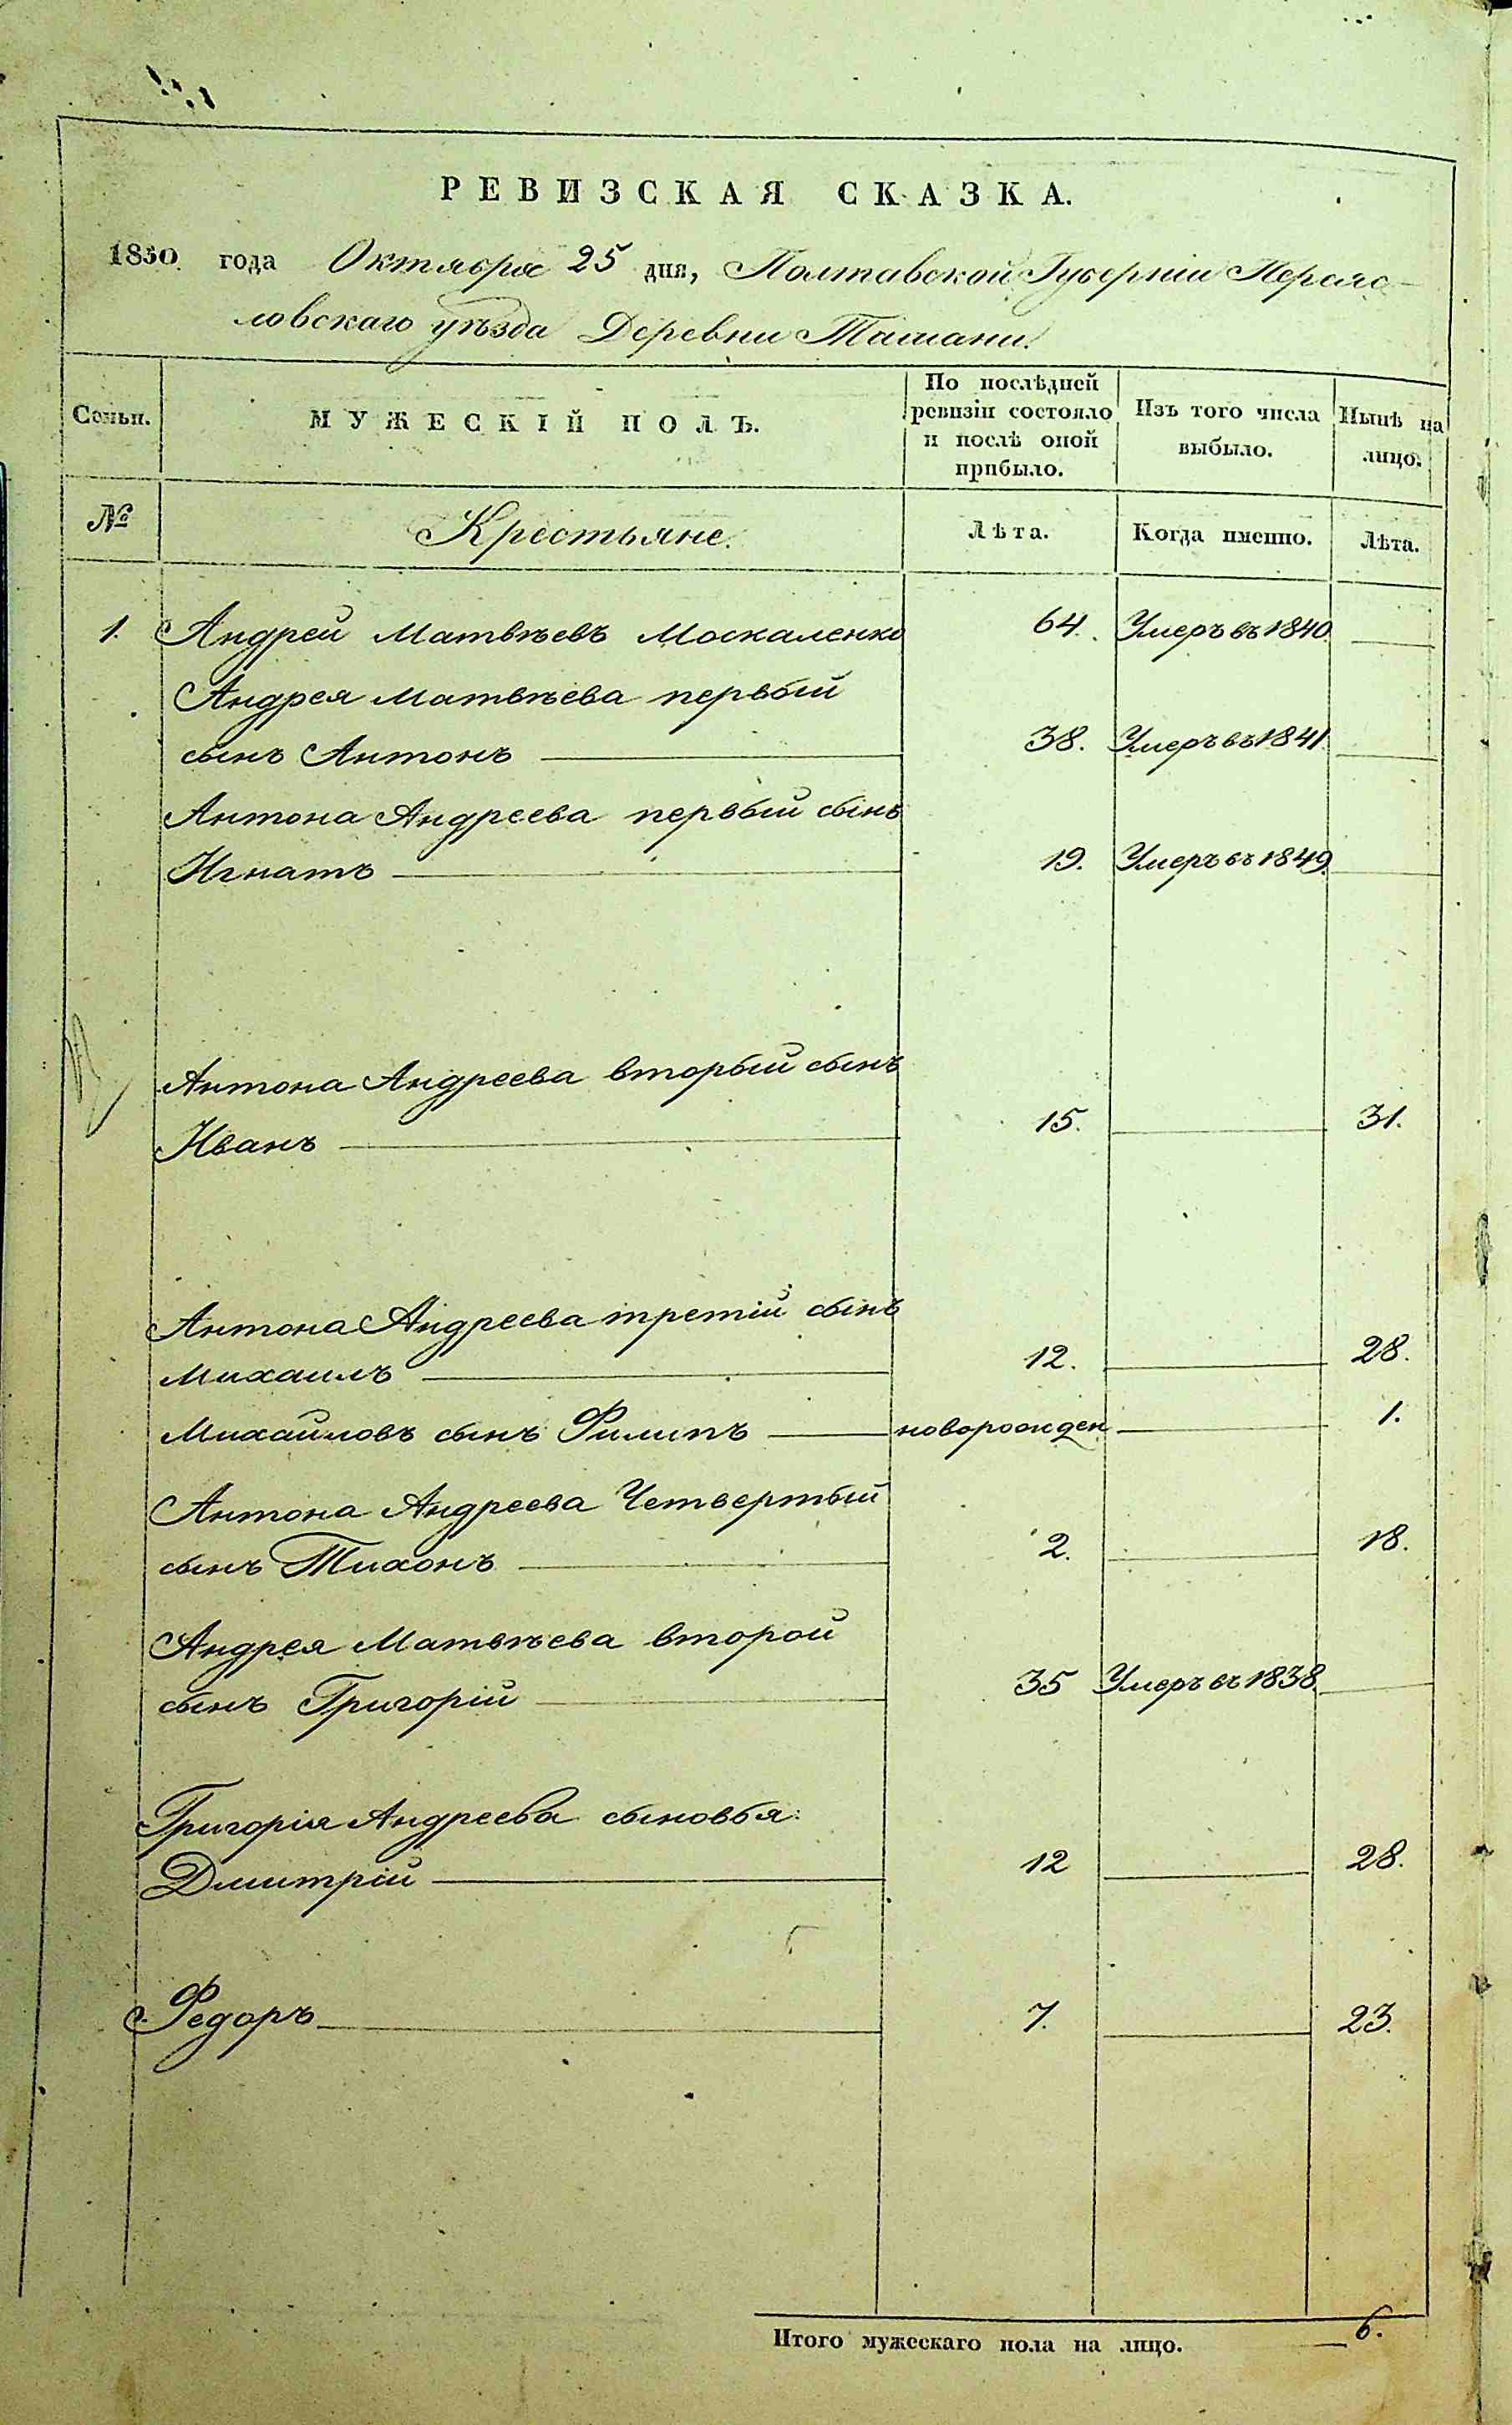 РЕВИЗСКАЯ СКАЗКА.
1850 года Октября 25 дня, Полтавской Губерніи Переяс-
ловскаго уѣзда Деревни Ташани.
Семьи.
МУЖЕСКІЙ ПОЛЪ.
По послѣдней
ревизіи состояло
и послѣ оной
прибыло.
Изъ того числа
выбыло.
Нынѣ на
лицо.
№ Крестьяне. Лѣта. Когда именно. Лѣта.
1. Андрей Матвѣевъ Москаленко 64. Умеръ въ 1840
Андрея Матвѣева первый
сынъ Антонъ 38. Умеръ въ 1841
Антона Андреева первый сынъ
Игнатъ 19. Умеръ въ 1849.
Антона Андреева вторый сынъ
Иванъ 15. 31.
Антона Андреева третій сынъ
Михаилъ 12. 28.
Михайловъ сынъ Филипъ новорожден 1.
Антона Андреева Четвертый
сынъ Тихонъ 2. 18.
Андрея Матвѣева второй
сынъ Григорій 35 Умеръ въ 1838
Григорія Андреева сыновья:
Дмитрій 12 28.
Федоръ 7. 23.
Итого мужескаго пола на лицо. 6.